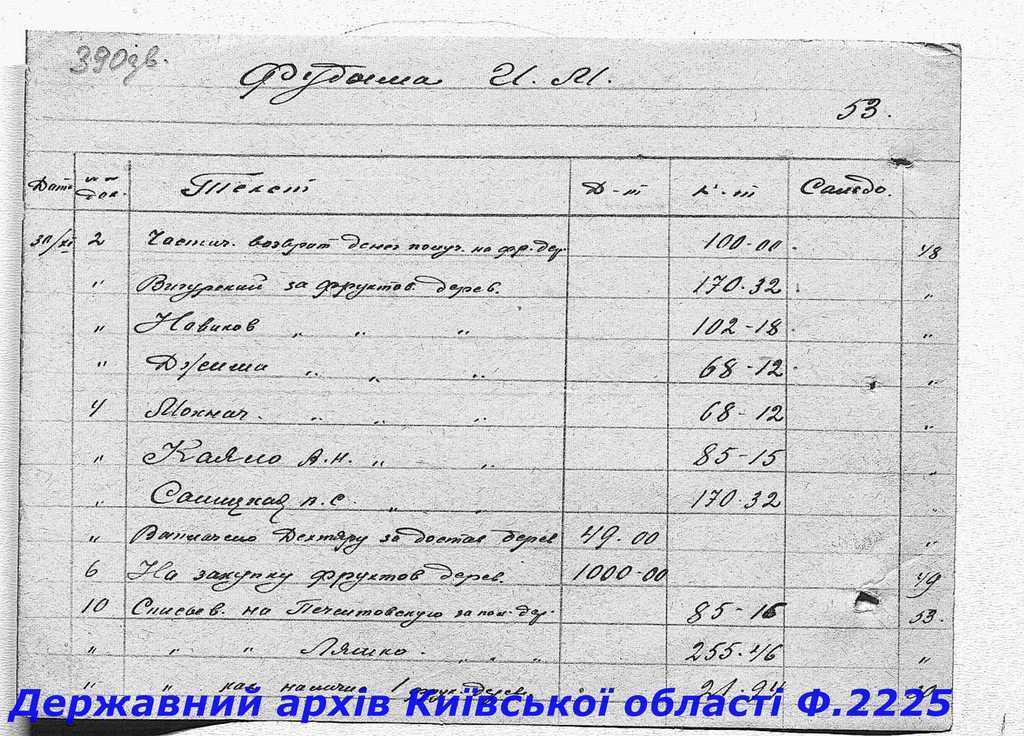 390 зв.
И. М.
53.
Дата № № док. Текст Д-т К-т Сальдо.
30/XI 2 Частич. возврат денег получ. на фр. дер. 100-00 48
" Вигурский за фруктов. дерев. 170-32 "
" Новиков " " " 102-18 "
" " " " 68-12 "
4 Мохнач. " " " 68-12 "
" Каяло А.Н. " " 85-15 "
" " " 170-32
" Выплачено Дехтяру за достав. дерев 49-00 "
6 На закупку фруктов дерев. 1000-00 49
10 Списыв. на за пол. дер. 85-16 53.
" " " Ляшко. " " " 255-46 "
" " как налич. 1 фрук. дерев.
Державний архів Київської області Ф.2225